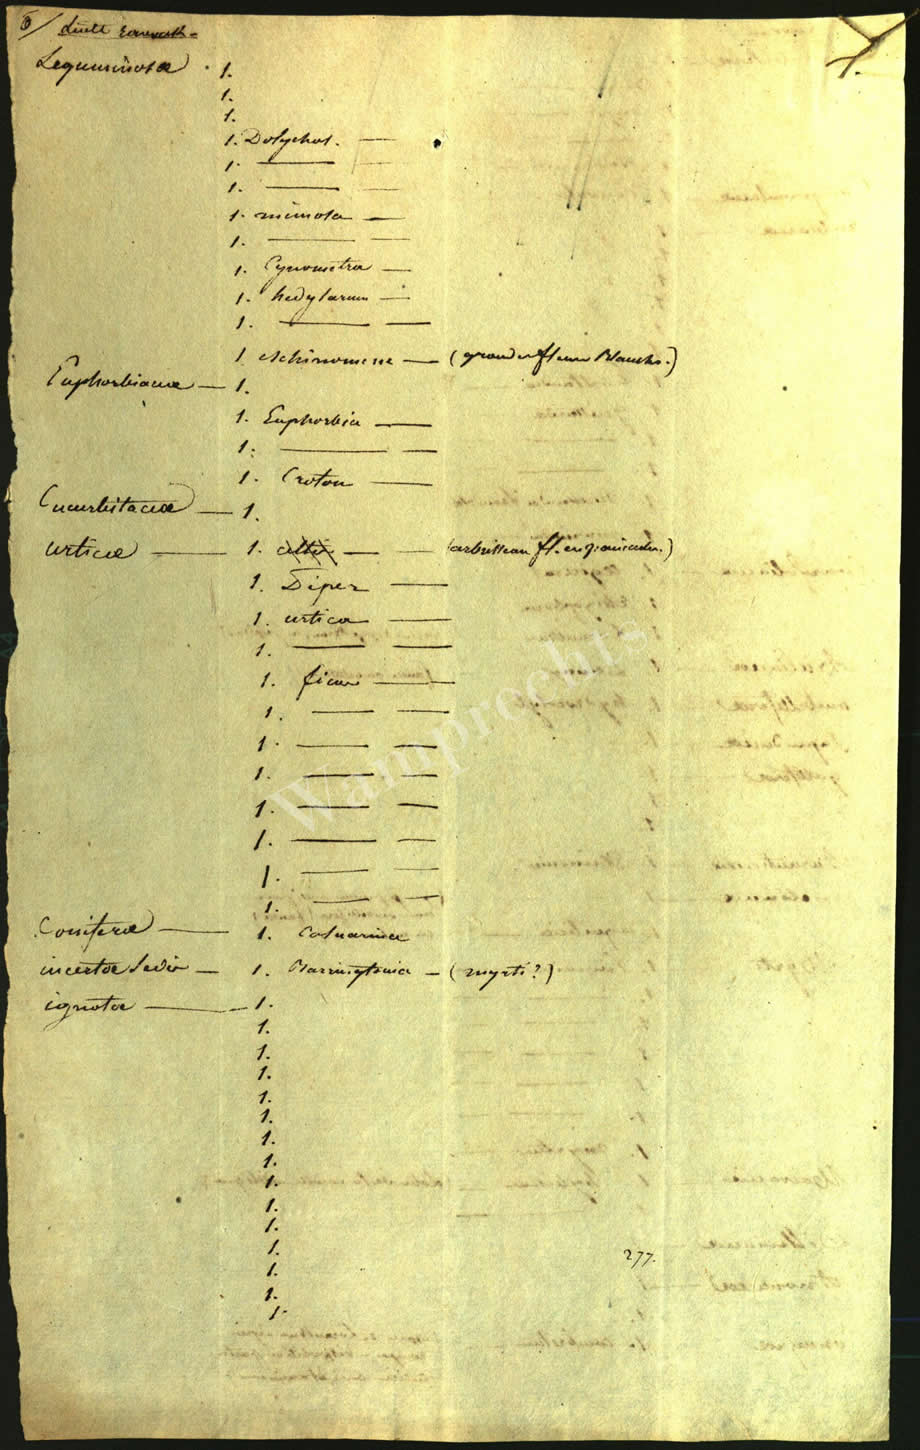 6/
Leguminosæ 1.
1.
1.
1. Dolychos. —
1. — —
1. — —
1. mimosa —
1. — —
1. Cynometra —
1. hedysarum —
1. — —
1 eschinomene — (grande fleur Blanche.)
Euphorbiaceæ — 1.
1. Euphorbia —
1. — —
1. Croton —
Cucurbitaceæ — 1.
urticæ — 1. celtis — — (arbrisseau fl. en panicules.)
1. Piper —
1. urtica —
1. — —
1. ficus —
1. — —
1. — —
1. — —
1. — —
1. — —
1. — —
1. — —
Coniferæ — 1. Casuarina
incertæ Sedis — 1. Barringtonia — (myrti?)
ignotæ — 1.
1.
1.
1.
1.
1.
1.
1.
1.
1.
1.
1.
277.
1.
1.
1.
Wamprechts